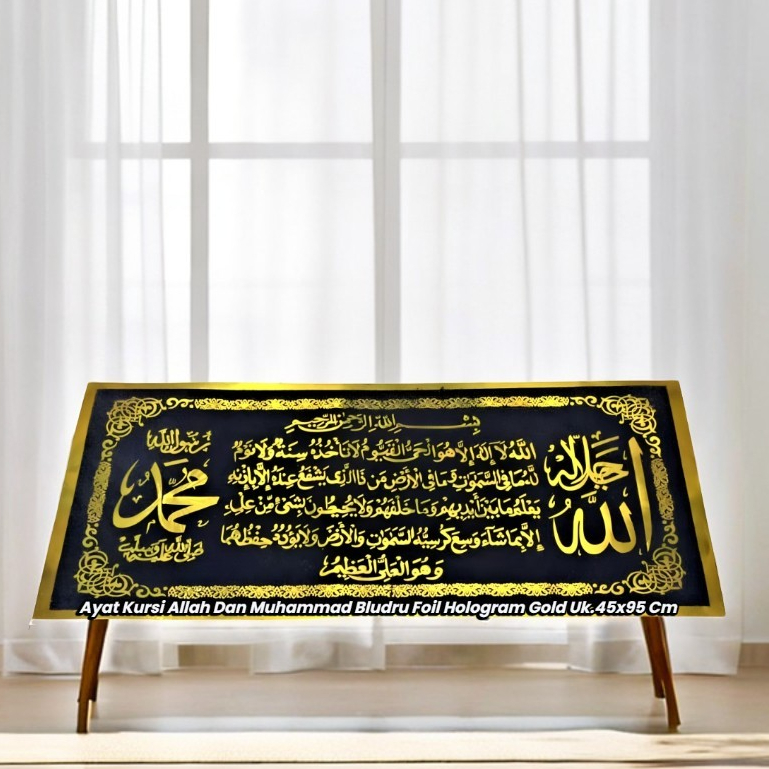 بسم الله الرحمن الرحيم
الله لا إله إلا هو الحي القيوم لا تأخذه سنة ولا نوم
له ما في السموات وما في الأرض من ذا الذي يشفع عنده إلا بإذنه
يعلم ما بين أيديهم وما خلفهم ولا يحيطون بشيء من علمه
إلا بما شاء وسع كرسيه السموات والأرض ولا يؤده حفظهما
وهو العلي العظيم
جل جلاله
الله
رسول الله
محمد
صلى الله عليه وسلم
Ayat Kursi Allah Dan Muhammad Bludru Foil Hologram Gold Uk.45x95 Cm